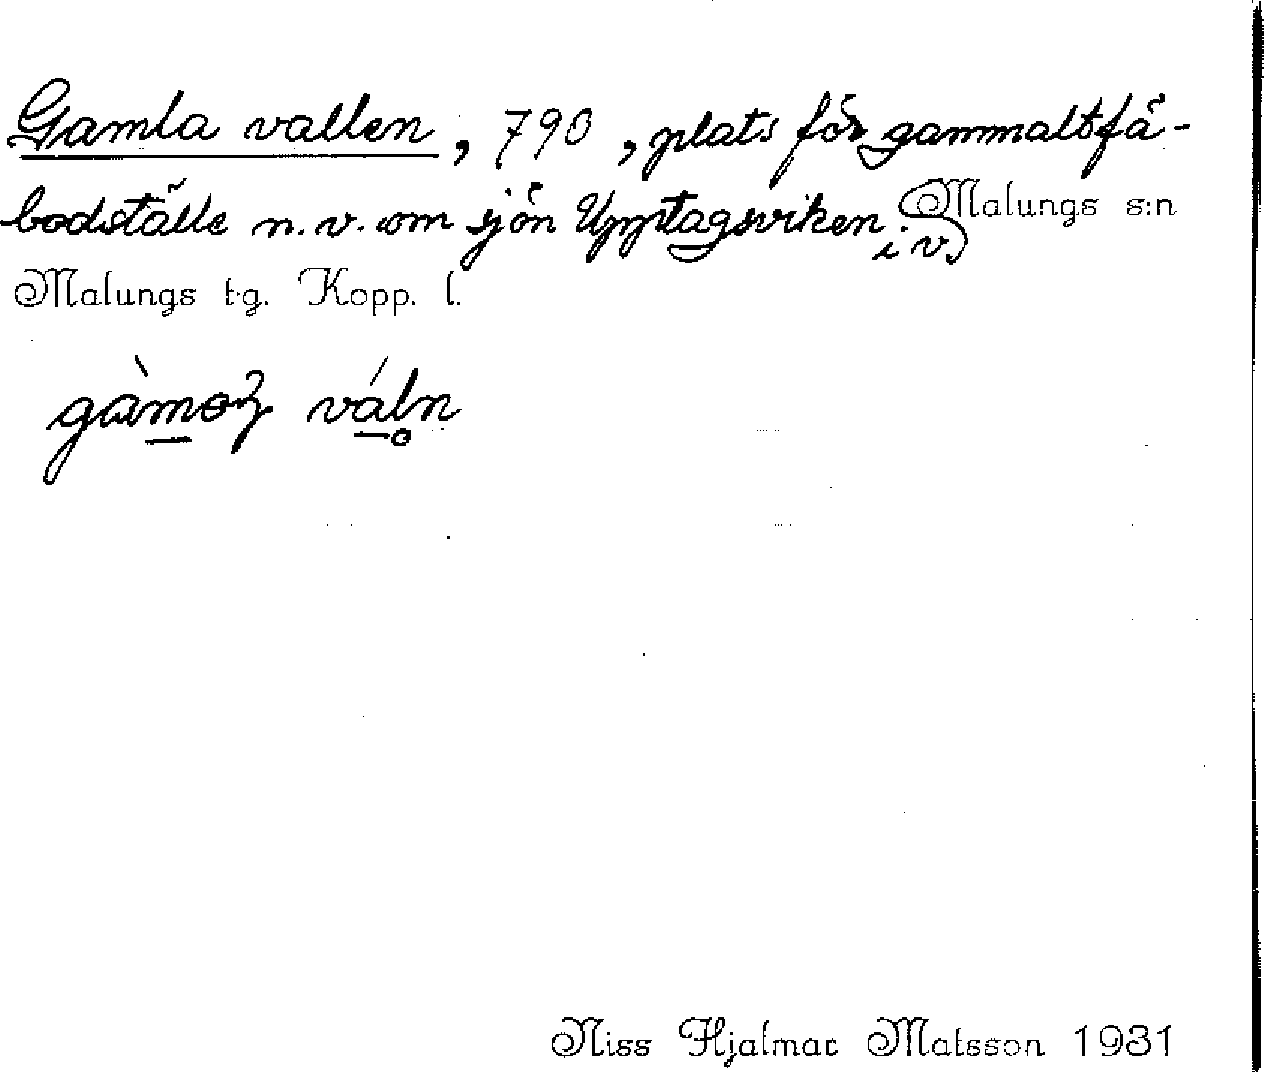 Gamla vallen, 790, plats för gammalt fä-
bodställe n.v. om sjön Upptagsviken i v. Malungs s:n
Malungs tg. Kopp. l.
gàmoɮ váln̥
Niss Hjalmar Matsson 1931